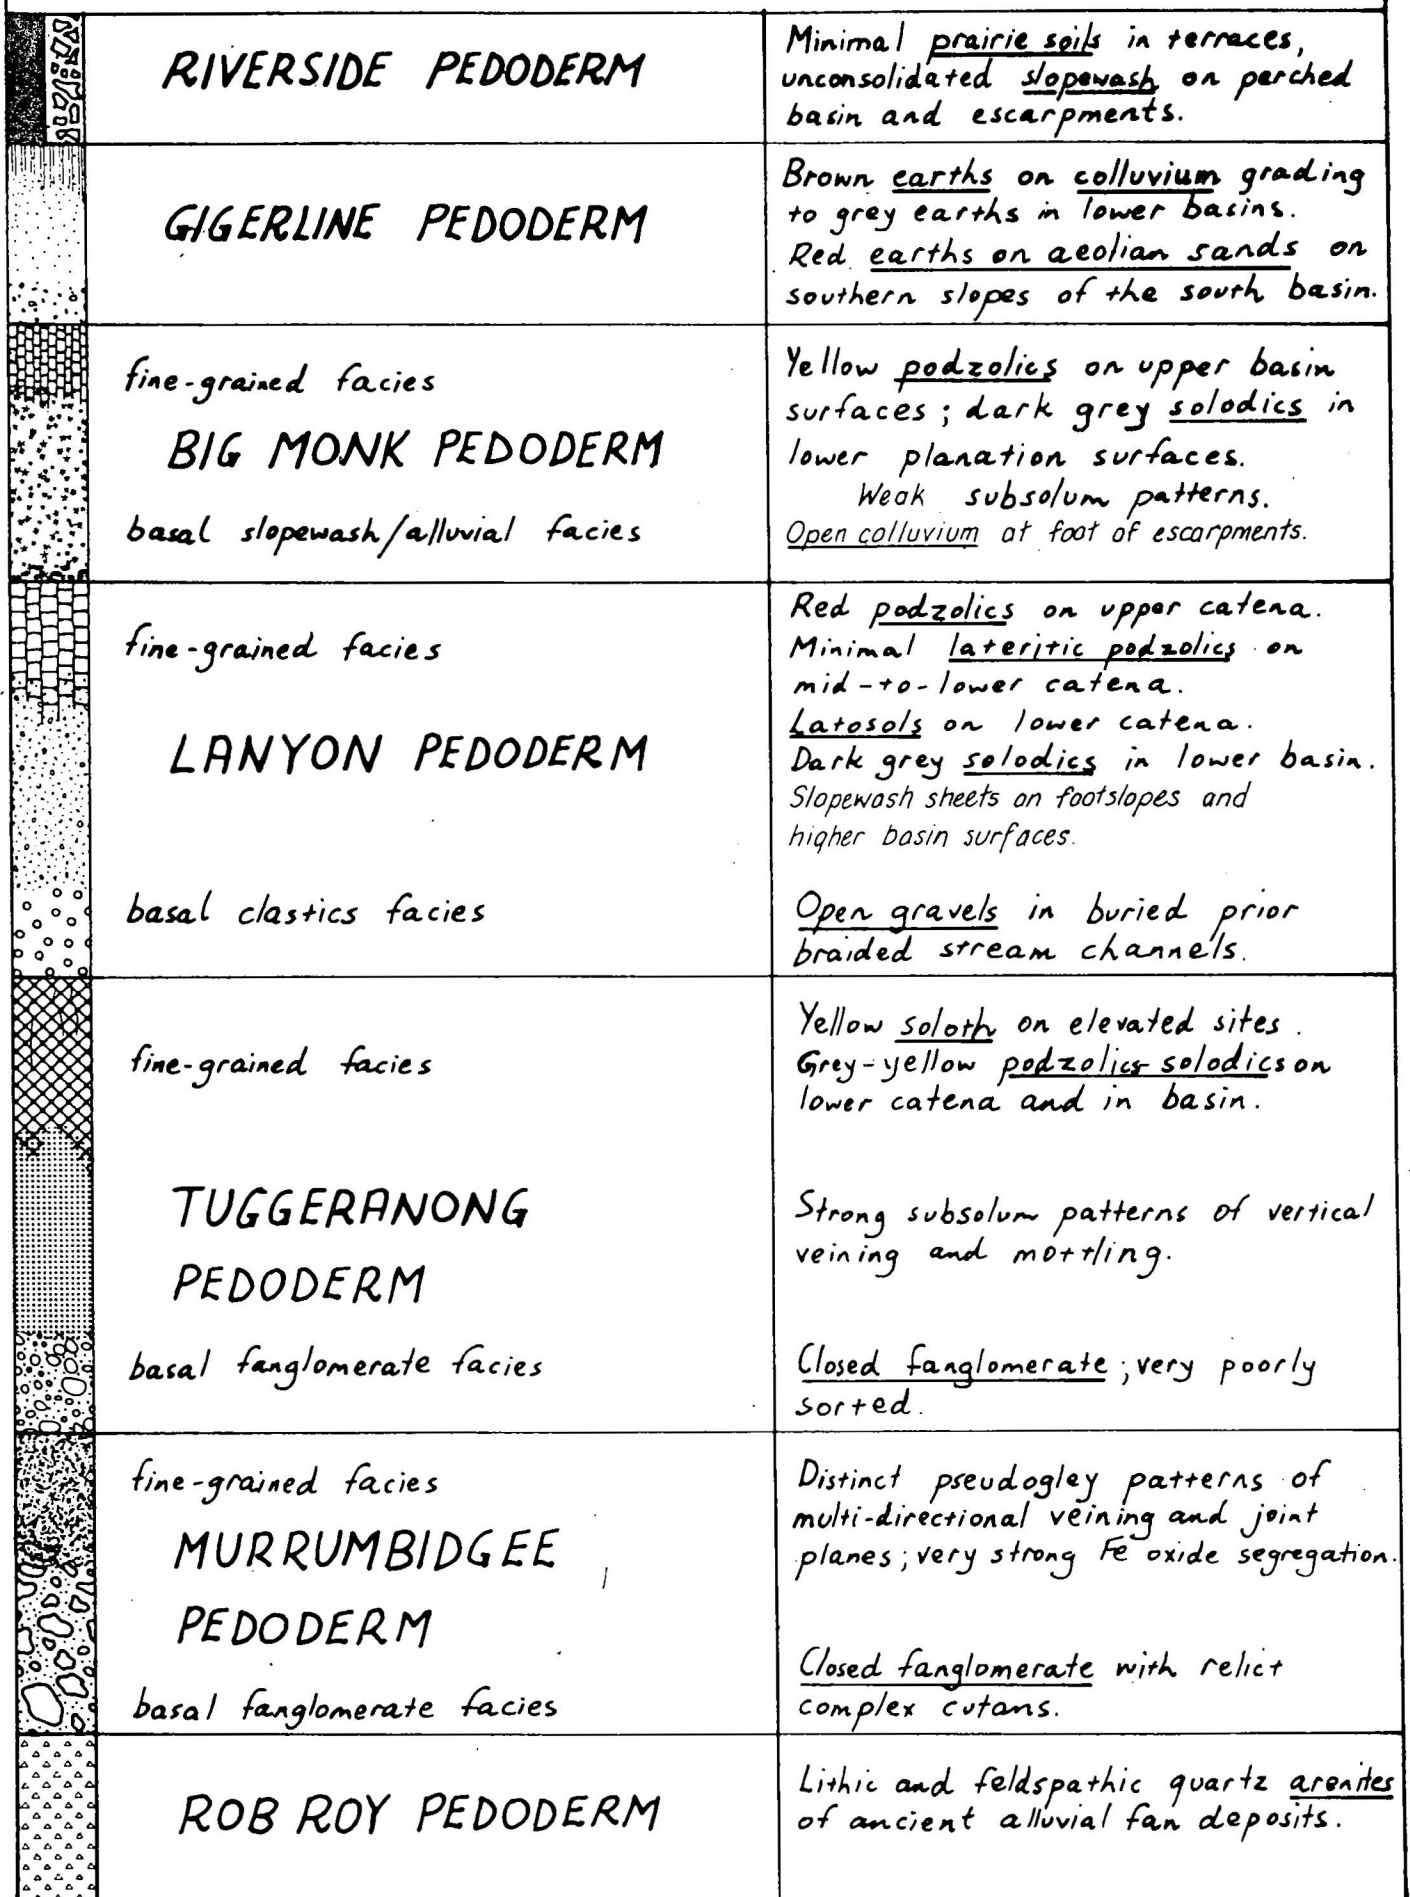 RIVERSIDE PEDODERM
Minimal prairie soils in terraces,
unconsolidated slopewash on perched
basin and escarpments.
GIGERLINE PEDODERM
Brown earths on colluvium grading
to grey earths in lower basins.
Red earths on aeolian sands on
southern slopes of the south basin.
fine-grained facies
BIG MONK PEDODERM
basal slopewash/alluvial facies
Yellow podzolics on upper basin
surfaces; dark grey solodics in
lower planation surfaces.
Weak subsolum patterns.
Open colluvium at foot of escarpments.
fine-grained facies
LANYON PEDODERM
basal clastics facies
Red podzolics on upper catena.
Minimal lateritic podzolics on
mid-to-lower catena.
Latosols on lower catena.
Dark grey solodics in lower basin.
Slopewash sheets on footslopes and
higher basin surfaces.
Open gravels in buried prior
braided stream channels.
fine-grained facies
TUGGERANONG
PEDODERM
basal fanglomerate facies
Yellow soloth on elevated sites.
Grey-yellow podzolics-solodics on
lower catena and in basin.
Strong subsolum patterns of vertical
veining and mottling.
Closed fanglomerate; very poorly
sorted.
fine-grained facies
MURRUMBIDGEE
PEDODERM
basal fanglomerate facies
Distinct pseudogley patterns of
multi-directional veining and joint
planes; very strong Fe oxide segregation.
Closed fanglomerate with relict
complex cutans.
ROB ROY PEDODERM
Lithic and feldspathic quartz arenites
of ancient alluvial fan deposits.